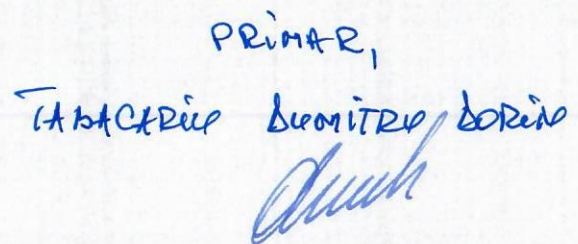 PRIMAR,
TABACARIU DUMITRU DORIN